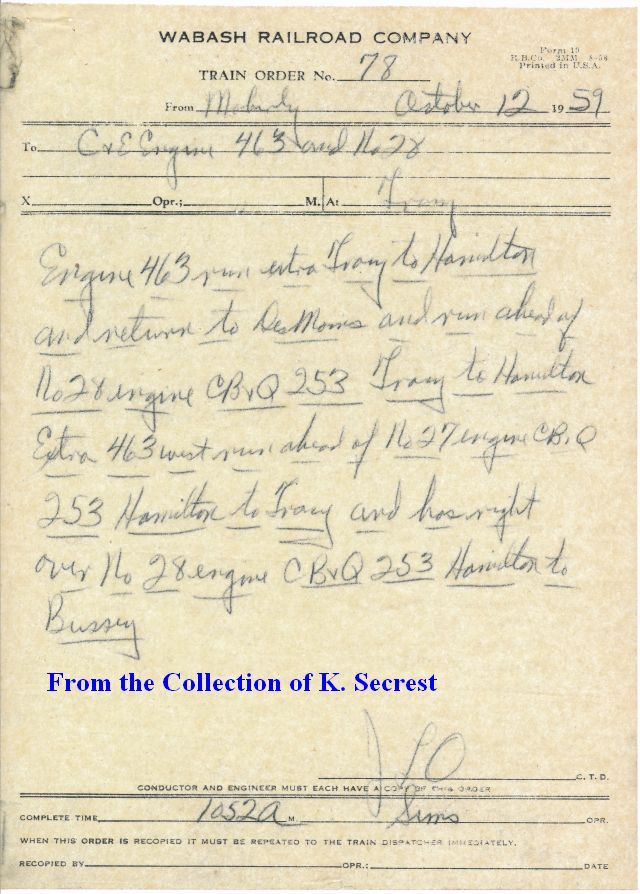 WABASH RAILROAD COMPANY
Form 19
R.B.Co. 2MM 8-58
Printed in U.S.A.
TRAIN ORDER No. 78
From Moberly October 12 1959
To C&E Engine 463 and No 28
X Opr.; M. At Tracy
Engine 463 run extra Tracy to Hamilton
and return to DesMoines and run ahead of
No 28 engine CB&Q 253 Tracy to Hamilton
Extra 463 west run ahead of No 27 engine CB&Q
253 Hamilton to Tracy and has right
over No 28 engine CB&Q 253 Hamilton to
Bussey
From the Collection of K. Secrest
JLO C. T. D.
CONDUCTOR AND ENGINEER MUST EACH HAVE A COPY OF THIS ORDER
COMPLETE TIME 1052A M. Sims OPR.
WHEN THIS ORDER IS RECOPIED IT MUST BE REPEATED TO THE TRAIN DISPATCHER IMMEDIATELY.
RECOPIED BY OPR.: DATE